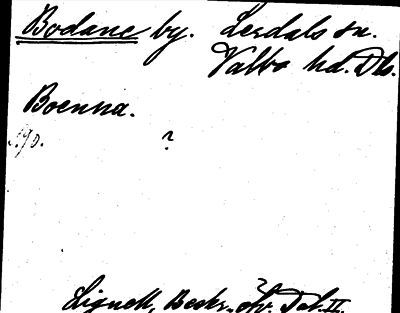 Bodane by. Lerdals sn.
Valbo hd. Dls.
Boenna.
?
Lignell, Beskr. öfv. Dal. II.